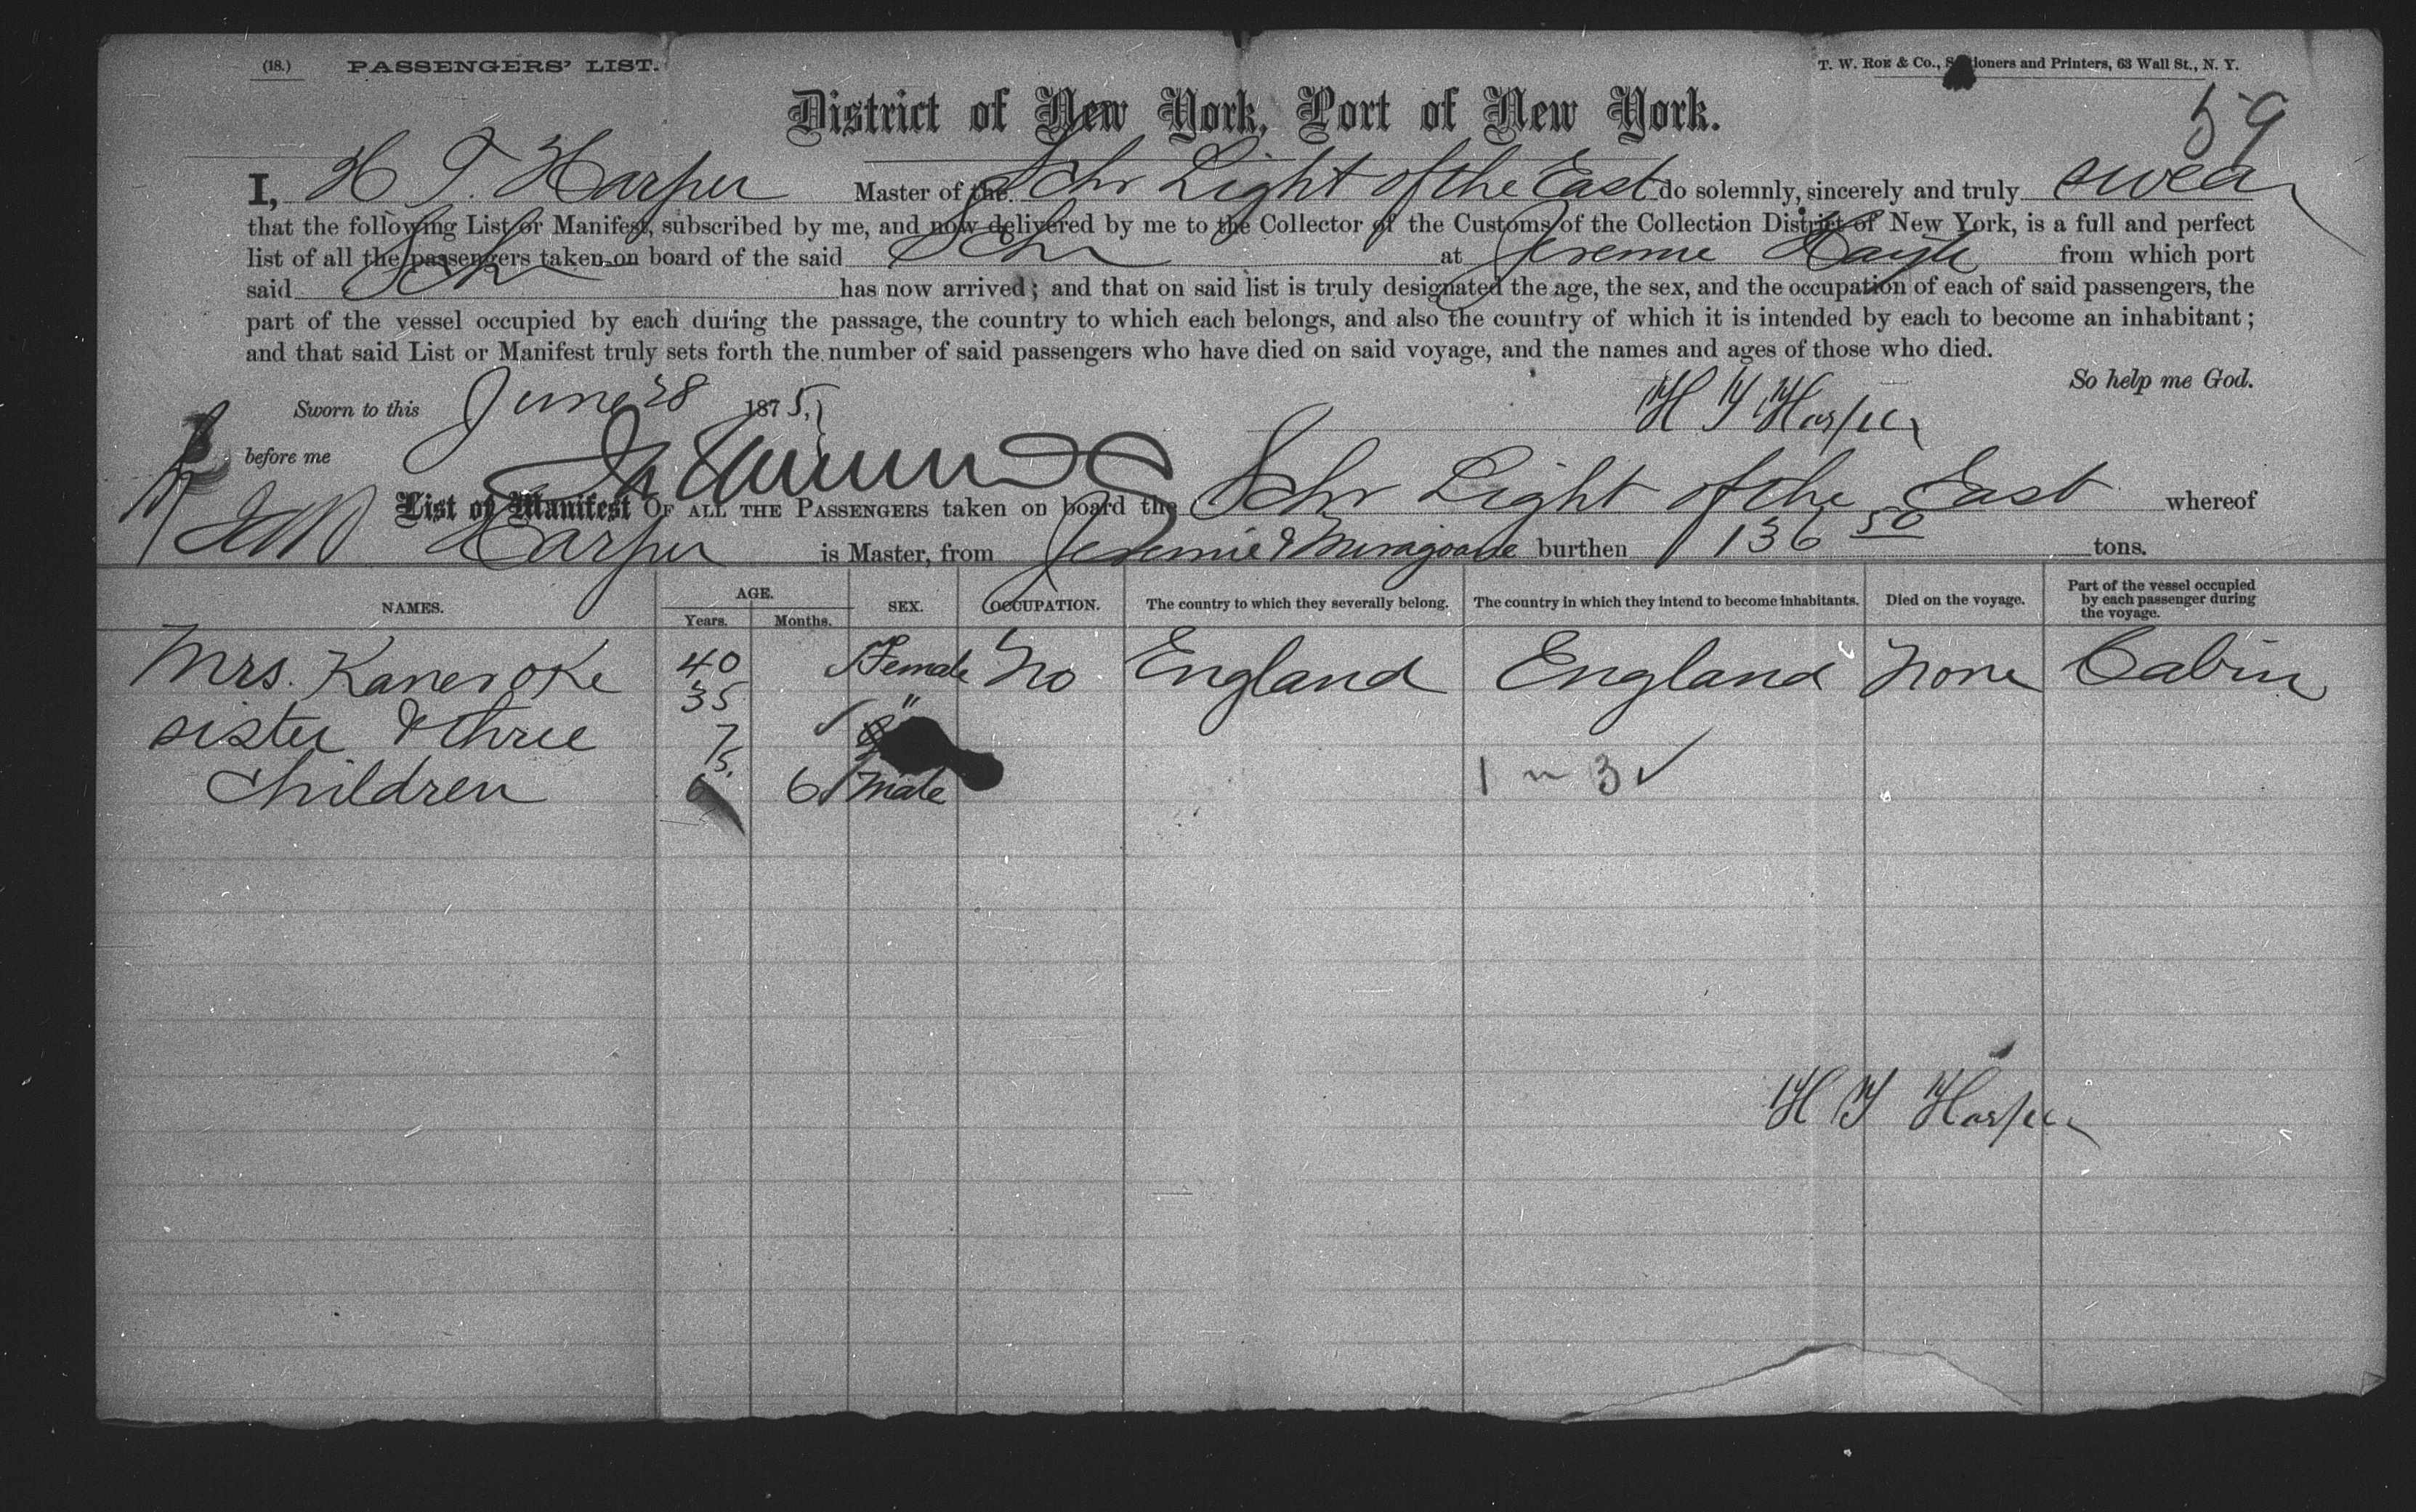 (18.) PASSENGERS' LIST. T. W. Roe & Co., Stationers and Printers, 63 Wall St., N. Y.
59
District of New York, Port of New York.
I, H T. Harper Master of the Schr Light of the East do solemnly, sincerely and truly swear
that the following List or Manifest, subscribed by me, and now delivered by me to the Collector of the Customs of the Collection District of New York, is a full and perfect
list of all the passengers taken on board of the said Schr at Jeremie Hayti from which port
said Schr has now arrived; and that on said list is truly designated the age, the sex, and the occupation of each of said passengers, the
part of the vessel occupied by each during the passage, the country to which each belongs, and also the country of which it is intended by each to become an inhabitant;
and that said List or Manifest truly sets forth the number of said passengers who have died on said voyage, and the names and ages of those who died.
So help me God.
Sworn to this June 28 1875, H T Harper
before me
List or Manifest OF ALL THE PASSENGERS taken on board the Schr Light of the East whereof
Harper is Master, from Jeremie & Miragoane burthen 136 50 tons.
NAMES. AGE. Years. Months. SEX. OCCUPATION. The country to which they severally belong. The country in which they intend to become inhabitants. Died on the voyage. Part of the vessel occupied by each passenger during the voyage.
Mrs. 40 Female No England England None Cabin
35 "
sister & three 7
5.
children 6 male
1 3 ✓
H T Harper